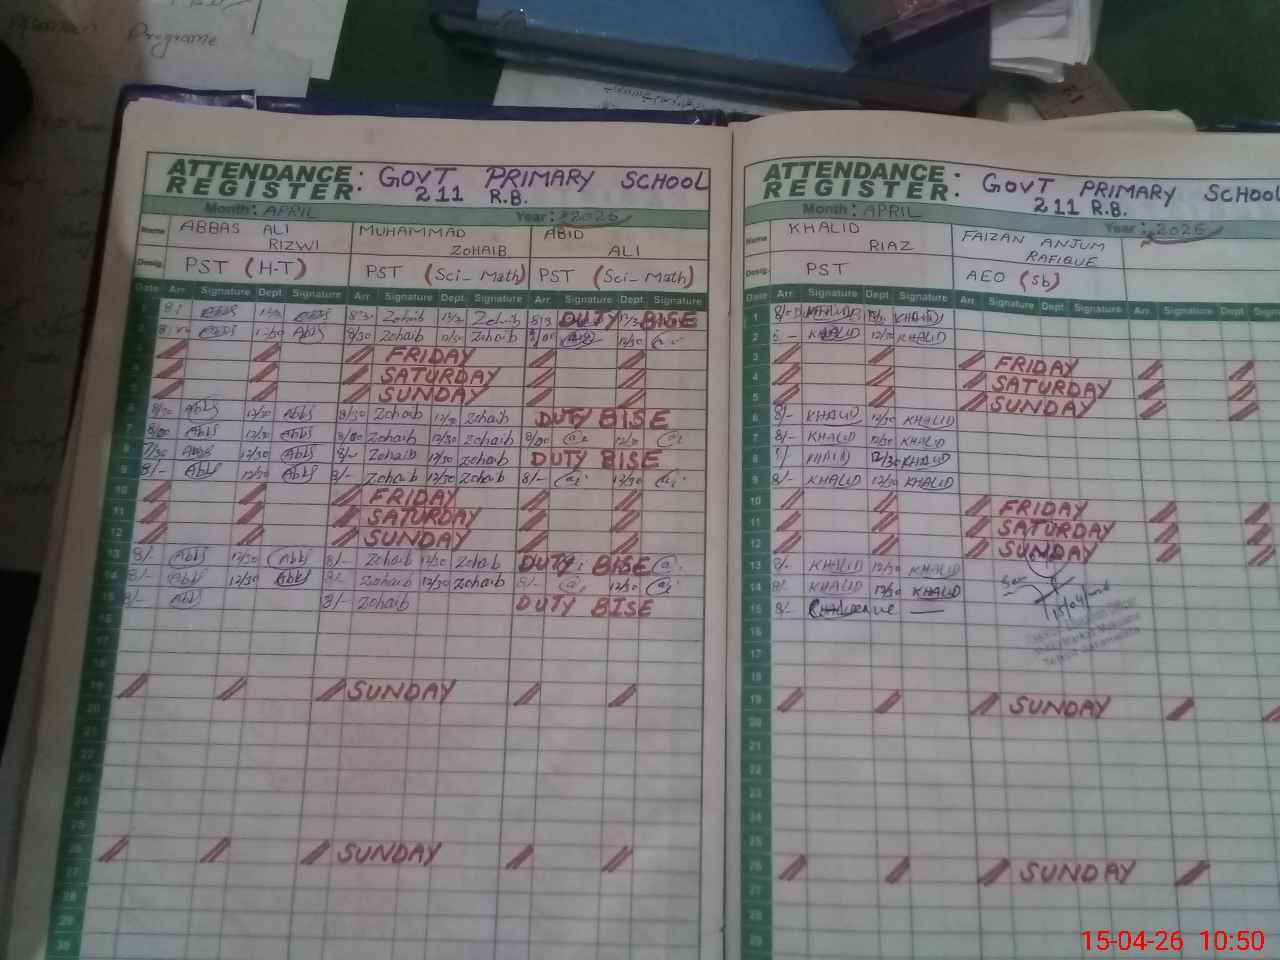 Programe
ATTENDANCE REGISTER: GOVT PRIMARY SCHOOL
211 R.B.
Month: APRIL Year: 2026
Name ABBAS ALI RIZWI MUHAMMAD ZOHAIB ABID ALI
Desig. PST (H-T) PST (Sci_Math) PST (Sci_Math)
Date Arr. Signature Dept. Signature Arr. Signature Dept. Signature Arr. Signature Dept. Signature
1 Zohaib Zohaib DUTY BISE
2 Abbs 8/30 Zohaib 12/30 Zohaib 12/30
3 FRIDAY
4 SATURDAY
5 SUNDAY
6 8/30 Abbs 12/30 Abbs 8/30 Zohaib Zohaib DUTY BISE
7 8/00 Abbs 12/30 Abbs 8/00 Zohaib 12/30 Zohaib 8/00 12/30
8 7/30 Abbs 12/30 Abbs 8/- Zohaib 12/30 Zohaib DUTY BISE
9 8/- Abbs 12/30 Abbs 8/- Zohaib 12/30 Zohaib 8/- 12/30
10 FRIDAY
11 SATURDAY
12 SUNDAY
13 8/- Abbs 12/30 Abbs 8/- Zohaib 12/30 Zohaib DUTY BISE
14 8/- Abbs 12/30 Abbs 8/- Zohaib 12/30 Zohaib 8/- 12/30
15 8/- Abbs 8/- Zohaib DUTY BISE
16
17
18
19 SUNDAY
20
21
22
23
24
25
26 SUNDAY
27
28
29
30
ATTENDANCE REGISTER: GOVT PRIMARY SCHOOL
211 R.B.
Month: APRIL Year: 2026
Name KHALID RIAZ FAIZAN ANJUM RAFIQUE
Desig. PST AEO (Sb)
Date Arr. Signature Dept. Signature Arr. Signature Dept. Signature Arr. Signature Dept.
1 KHALID KHALID
2 KHALID 12/30 KHALID
3 FRIDAY
4 SATURDAY
5 SUNDAY
6 8/- KHALID 12/30 KHALID
7 8/- KHALID 12/30 KHALID
8 KHALID 12/30 KHALID
9 8/- KHALID 12/30 KHALID
10 FRIDAY
11 SATURDAY
12 SUNDAY
13 8/- KHALID 12/30 KHALID
14 8/- KHALID 12/30 KHALID
15 8/-
16
17
18
19 SUNDAY
20
21
22
23
24
25
26 SUNDAY
27
28
29
15-04-26 10:50